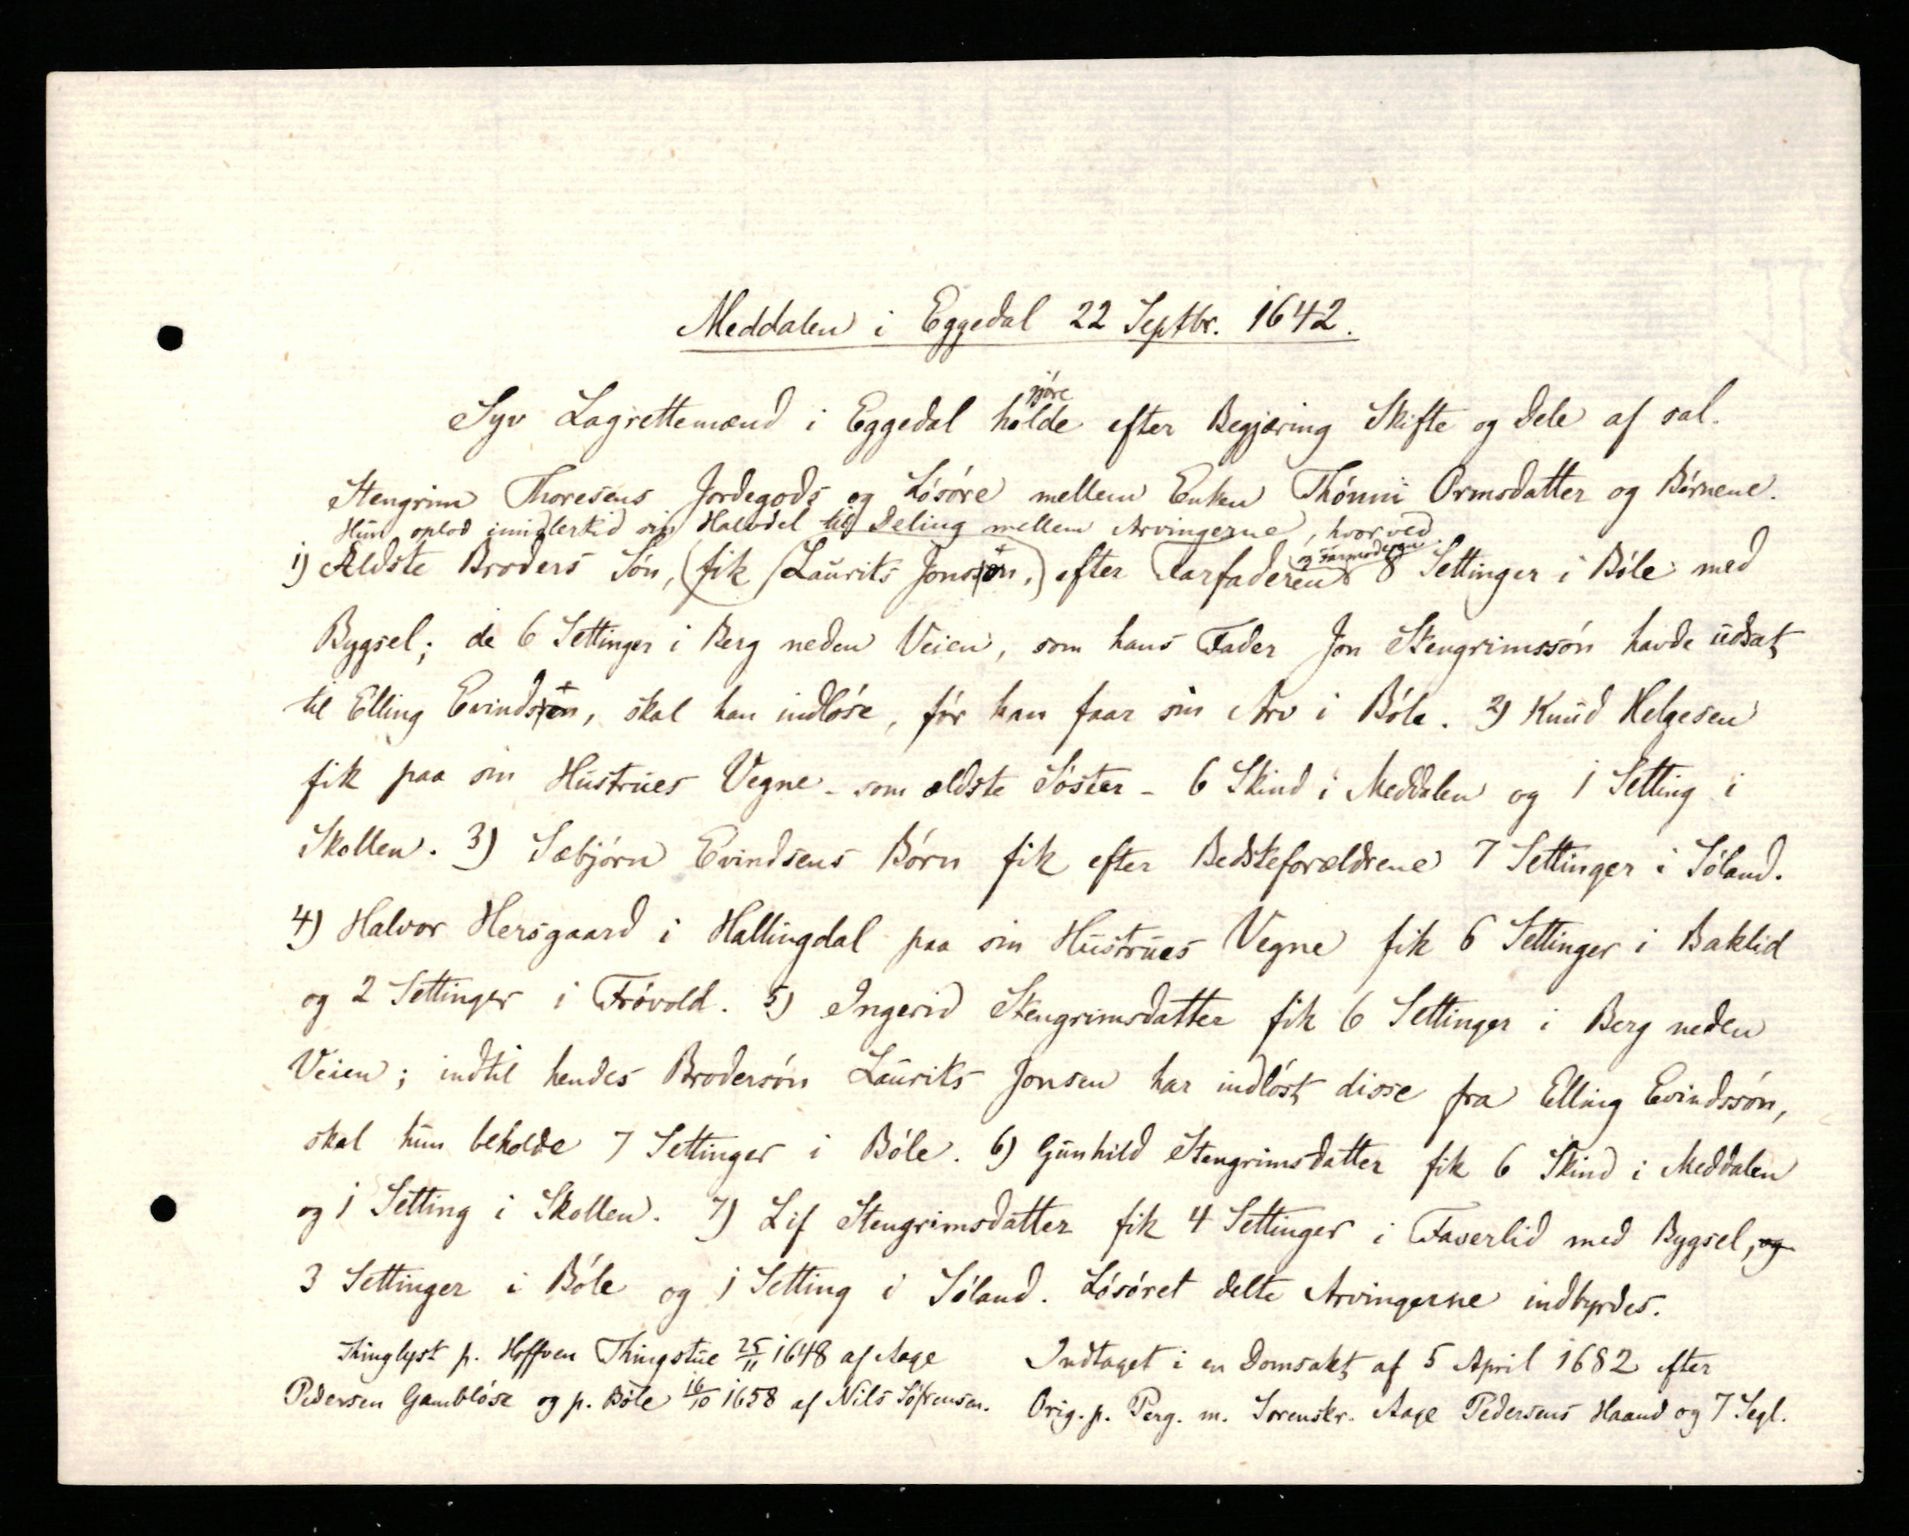 Meddalen i Eggedal 22 Septbr. 1642.
gjöre
Syv Lagrettemænd i Eggedal holde efter Begjæring Skifte og Dele af sal.
Stengrim Thoresens Jordegods og Lösöre mellem Enken Thönni Ormsdatter og Börnene.
Hun oplod imidlertid sin Halvdel til Deling mellem Arvingerne, hvorved
og Farmoderen
1) Ældste Broders Sön, (fik (Laurits Jonssön,) efter Farfaderen 8 Settinger i Böle med
Bygsel; de 6 Settinger i Berg neden Veien, som hans Fader Jon Stengrimssön havde udsat
til Elling Evindssön, skal han indlöse, för han faar sin Arv i Böle. 2) Knud Helgesen
fik paa sin Hustrues Vegne - som ældste Söster - 6 Skind i Meddalen og 1 Setting i
Skollen. 3) Sæbjörn Evindsens Börn fik efter Bedsteforældrene 7 Settinger i Söland.
4) Halvor Hersgaard i Hallingdal paa sin Hustrues Vegne fik 6 Settinger i Baklid
og 2 Settinger i Frövold. 5) Ingerid Stengrimsdatter fik 6 Settinger i Berg neden
Veien; indtil hendes Brodersön Laurits Jonsen har indlöst disse fra Elling Evindssön,
skal hun beholde 7 Settinger i Böle. 6) Gunhild Stengrimsdatter fik 6 Skind i Meddalen
og 1 Setting i Skollen. 7) Lif Stengrimsdatter fik 4 Settinger i Faverlid med Bygsel, og
3 Settinger i Böle og 1 Setting i Söland. Lösöret delte Arvingerne indbyrdes.
Thinglyst p. Hoffven Thingstue 25/11 1648 af Aage
Pedersen Gamblöse og p. Böle 16/10 1658 af Nils Söfrensen.
Indtaget i en Domsakt af 5 April 1682 efter
Orig. p. Perg. m. Sorenskr. Aage Pedersens Haand og 7 Segl.